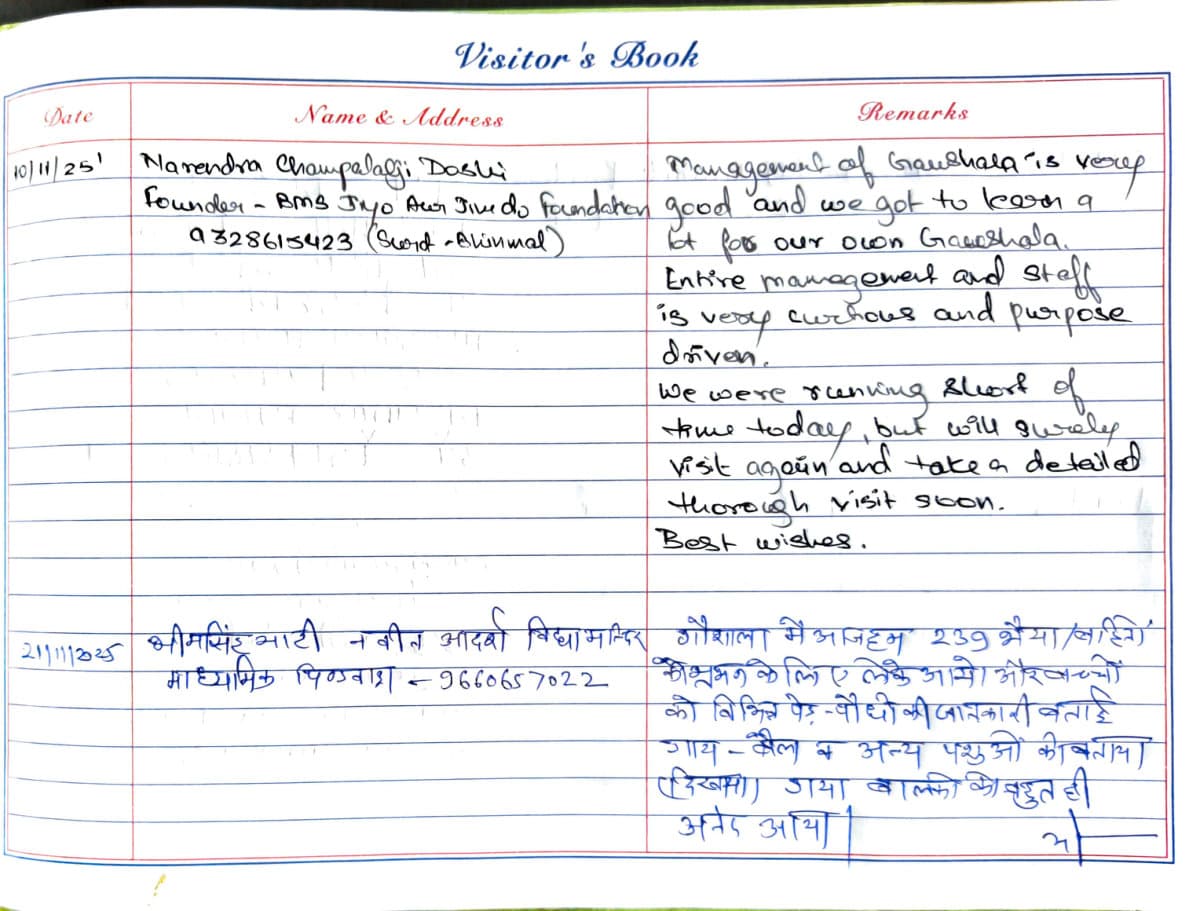 Visitor's Book
Date Name & Address Remarks
10/11/25' Narendra Champalalji Doshi Management of Gaushala is very
Founder - BMS Jiyo Aur Jine do Foundation good and we got to learn a
9328615423 lot for our own Gaushala.
Entire management and staff
is very and purpose
driven.
We were running short of
time today, but will surely
visit again and take a detailed
thorough visit soon.
Best wishes.
21/11/2025 भीमसिंह भाटी नवीन आदर्श विद्या मन्दिर गौशाला मै आज हम 239 भैया/बहिनों
माध्यमिक - 9660657022 को भ्रमण के लिए लेके आये। और बच्चों
को विभिन्न पेड़-पौधो की जानकारी बताई
गाय - बैल व अन्य पशुओं को बताया
गया बालकों को बहुत ही
आया।